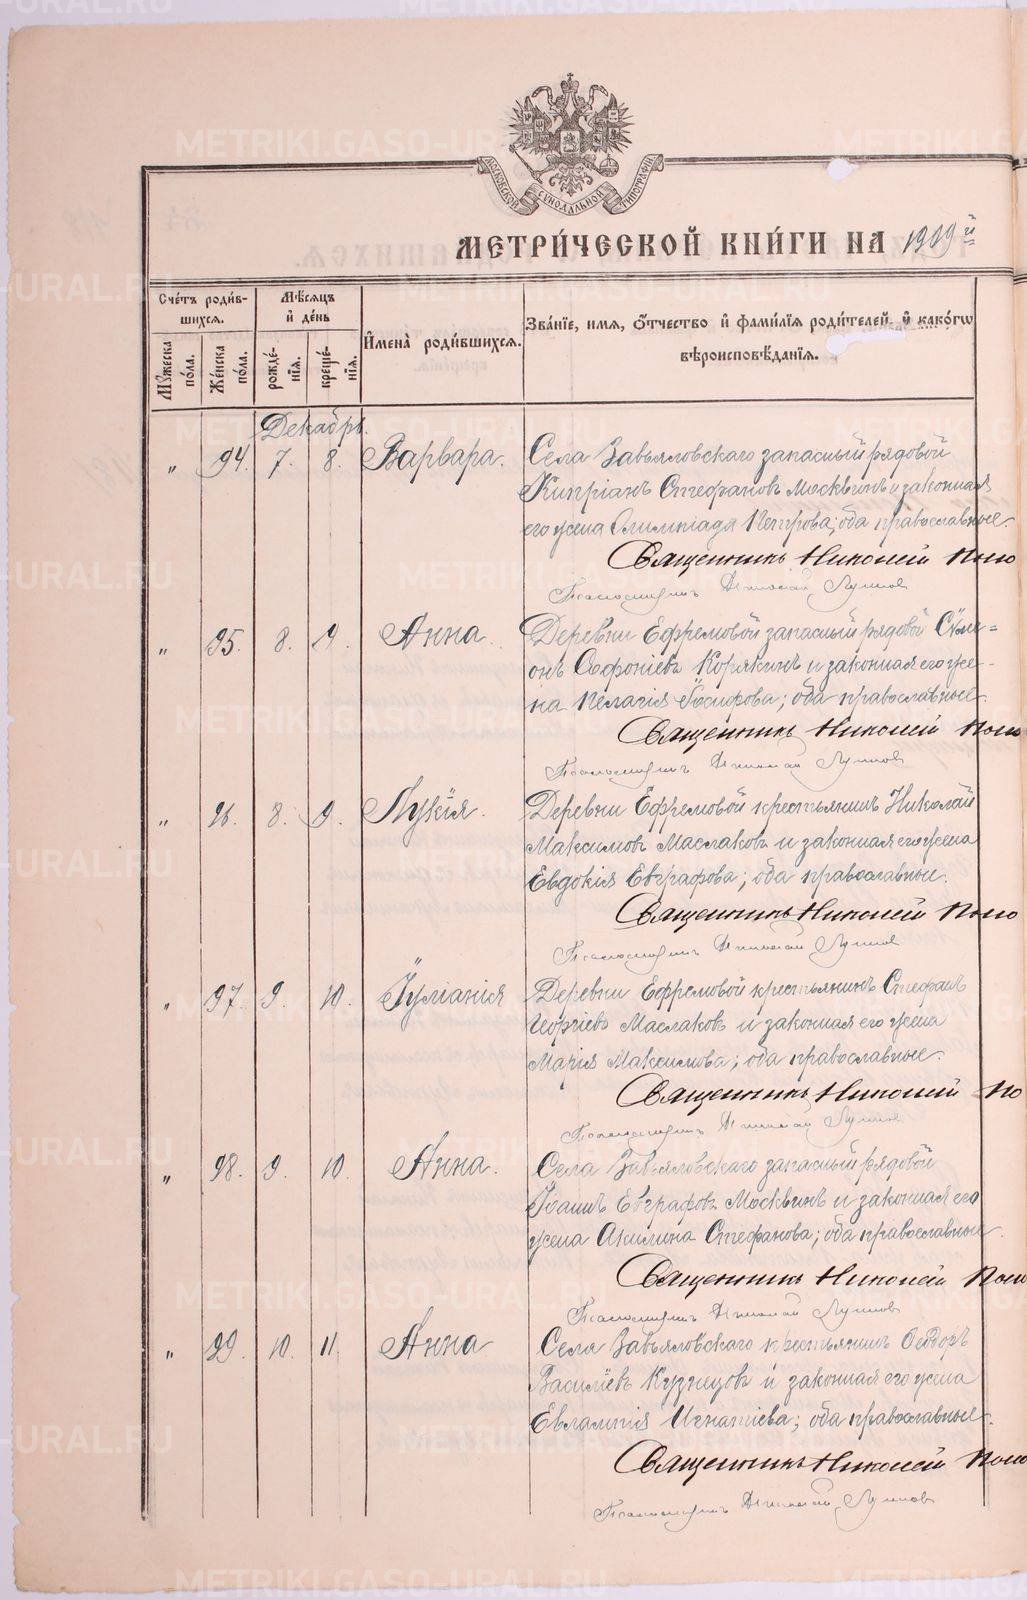 МОСКОВСКОЙ СѴНОДАЛЬНОЙ ТИПОГРАФІИ
МЕТРИ́ЧЕСКОЙ КНИ́ГИ НА 1909й
Сче́тъ роди́в-
шихся.
Мѣ́сяцъ
и де́нь
Имена̀ роди́вшихся.
Зва́нїе, имя, Ѻ҆́тчество и фами́лїя роди́телей, и како́гѡ
вѣроисповѣ́данїя.
Мꙋ́жеска по́ла.
Же́нска по́ла.
рожде́нїя.
креще́нїя.
Декабрь.
" 94. 7. 8. Варвара. Села Завьяловскаго запасный рядовой
Кипріанъ Стефановъ Москвинъ и законная
его жена Олимпіада Петрова; оба православные.
Священникъ Николай
Псаломщикъ
" 95. 8. 9. Анна. Деревни Ефремовой запасный рядовой Сѵме-
онъ Софоніевъ Корякинъ и законная его же-
на Пелагія Іосифова; оба православные.
Священникъ Николай
Псаломщикъ
" 96. 8. 9. Лукія. Деревни Ефремовой крестьянинъ Николай
Максимовъ Маслаковъ и законная его жена
Евдокія Евграфова; оба православные.
Священникъ Николай
Псаломщикъ
" 97. 9. 10. Іуліанія Деревни Ефремовой крестьянинъ Стефанъ
Георгіевъ Маслаковъ и законная его жена
Марія Максимова; оба православные.
Священникъ Николай
Псаломщикъ
" 98. 9. 10. Анна. Села Завьяловскаго запасный рядовой
Іоаннъ Евграфовъ Москвинъ и законная его
жена Акилина Стефанова; оба православные.
Священникъ Николай
Псаломщикъ
" 99. 10. 11. Анна Села Завьяловскаго крестьянинъ Ѳеодоръ
Василіевъ Кузнецовъ и законная его жена
Евлампія Игнатіева; оба православные.
Священникъ Николай
Псаломщикъ
METRIKI.GASO-URAL.RU